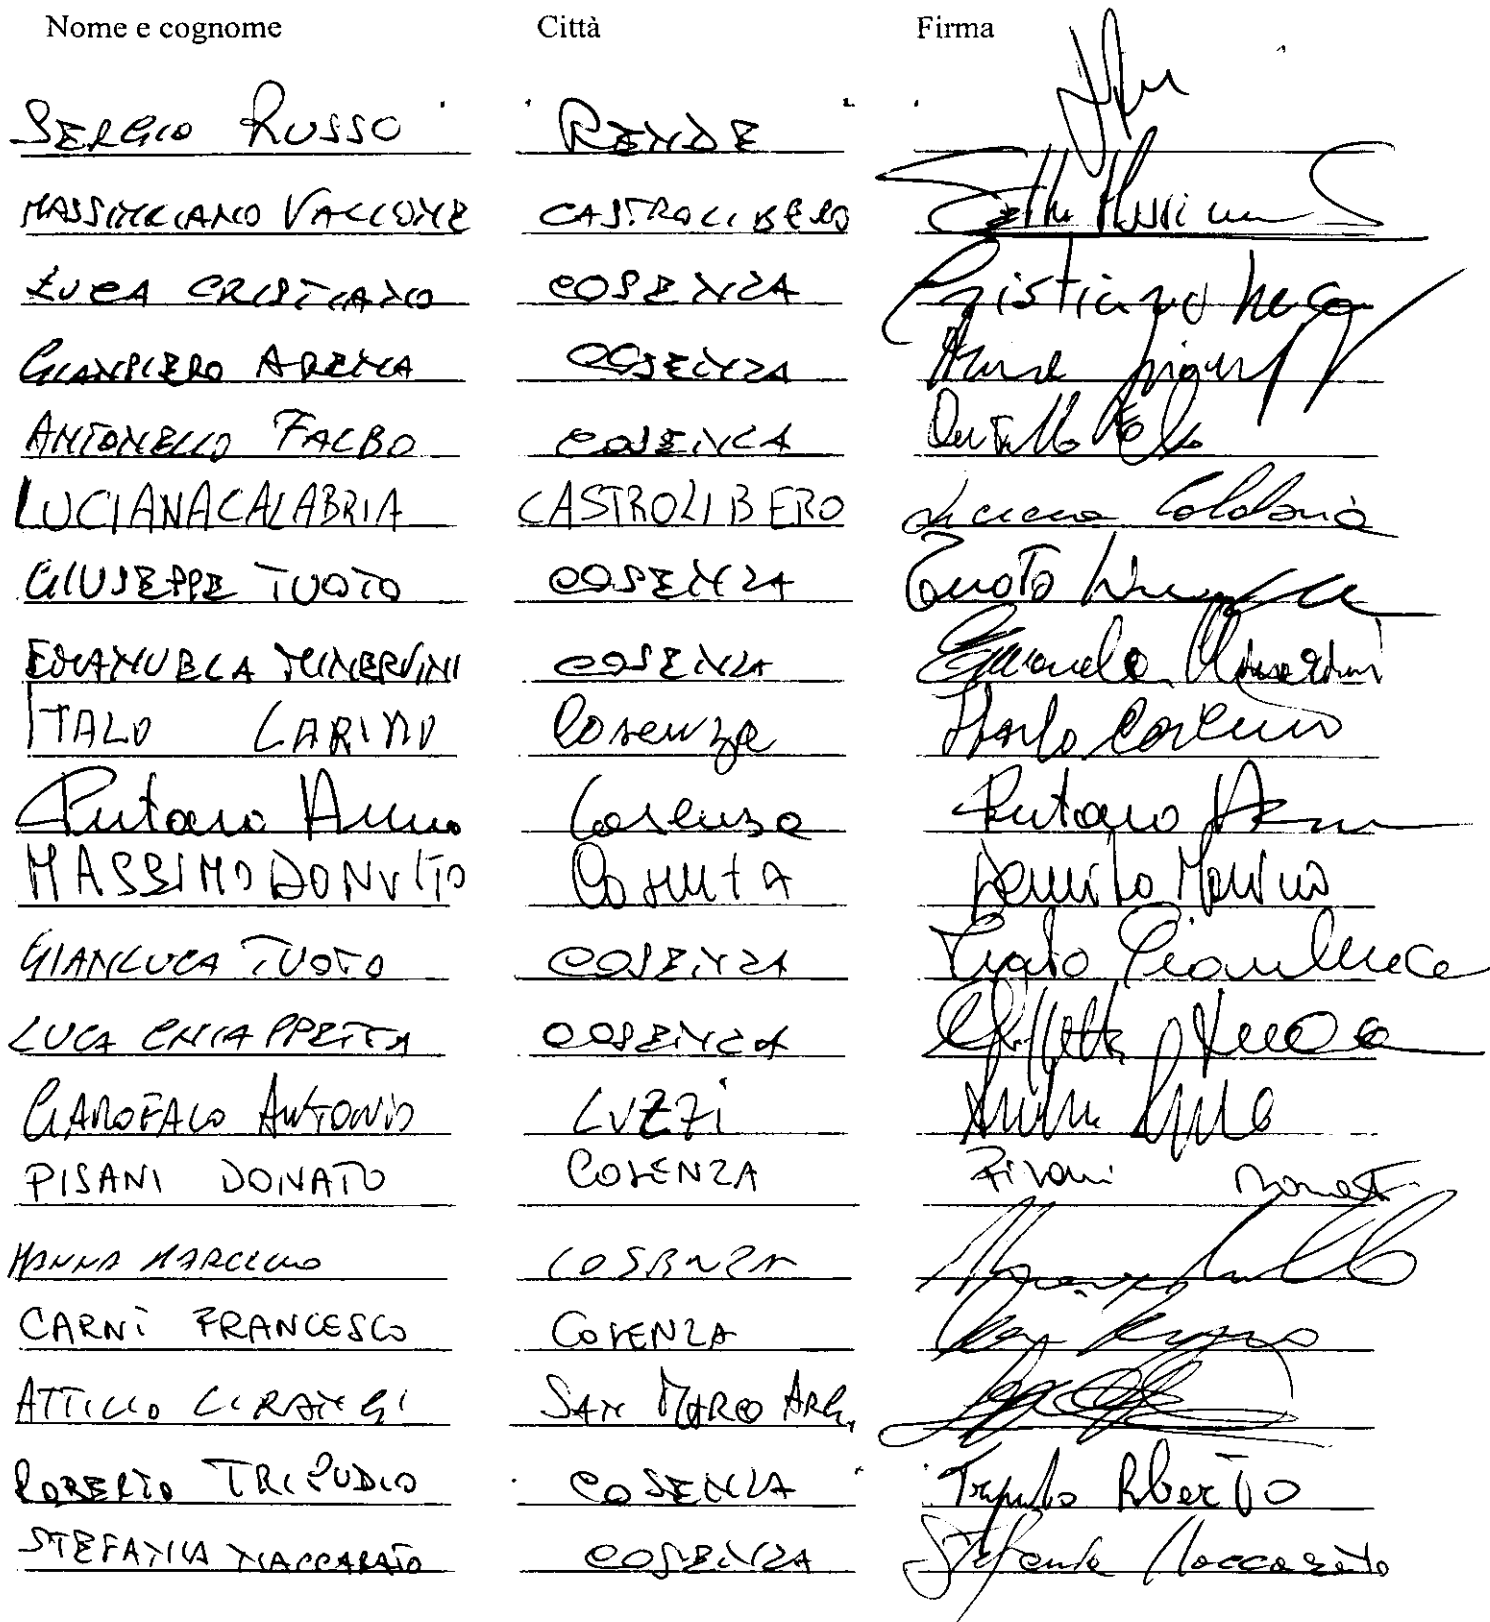 Nome e cognome Città Firma
SERGIO RUSSO RENDE
MASSIMILIANO VALLONE CASTROLIBERO
LUCA CRISTIANO COSENZA Cristiano Luca
GIANPIERO ARENA COSENZA
ANTONELLO FALBO COSENZA
LUCIANA CALABRIA CASTROLIBERO Luciana Calabria
GIUSEPPE TUOTO COSENZA Tuoto
EMANUELA MINERVINI COSENZA Emanuela Minervini
ITALO CARINO Cosenza Italo Carino
Cosenza
MASSIMO DONVITO Cosenza
GIANLUCA TUOTO COSENZA Tuoto Gianluca
LUCA CHIAPPETTA COSENZA
GAROFALO ANTONIO LUZZI
PISANI DONATO COSENZA Pisani Donato
MANNA MARCELLO COSENZA
CARNÌ FRANCESCO COSENZA
ATTILIO SAN MARCO ARG.
ROBERTO TRIPUDIO COSENZA Roberto
STEFANIA MACCARATO COSENZA Stefania Maccarato